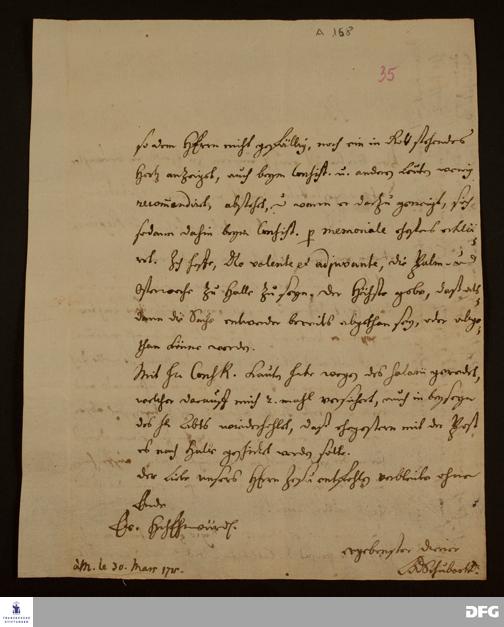 A 168
35
so dem Herrn nicht gefällig, noch ein in Gott stehendes
Hertz anzeiget, auch beym Consist. u. andern Leuten wenig
recommandirt, abstehet, u. wenn er dazu geneigt, sich
sodann dahin beym Consist. p memoriale ehestens erklä-
ret. Ich hoffe, Deo volente et adjuvante, die Palm- und
Osterwoche zu Halle zu seyn, der Höchste gebe, daß als-
denn die Sache entweder bereits abgethan sey, oder abge-
than könne werden.
Mit H. habe wegen des Salarii geredet,
welcher darauff mich 2. mahl versichert, auch in beyseyn
des H. Abts wiederhohlet, daß ehegestern mit der Post
es nach Halle gesendet werden solte.
Der Liebe unsers Herrn Jesu empfohlen verbleibe ohne
Ende
Ew. HochEhrwürd.
ergebenster Diener
Schubart
à M. le 30. Mars
FRANCKESCHE STIFTUNGEN
DFG